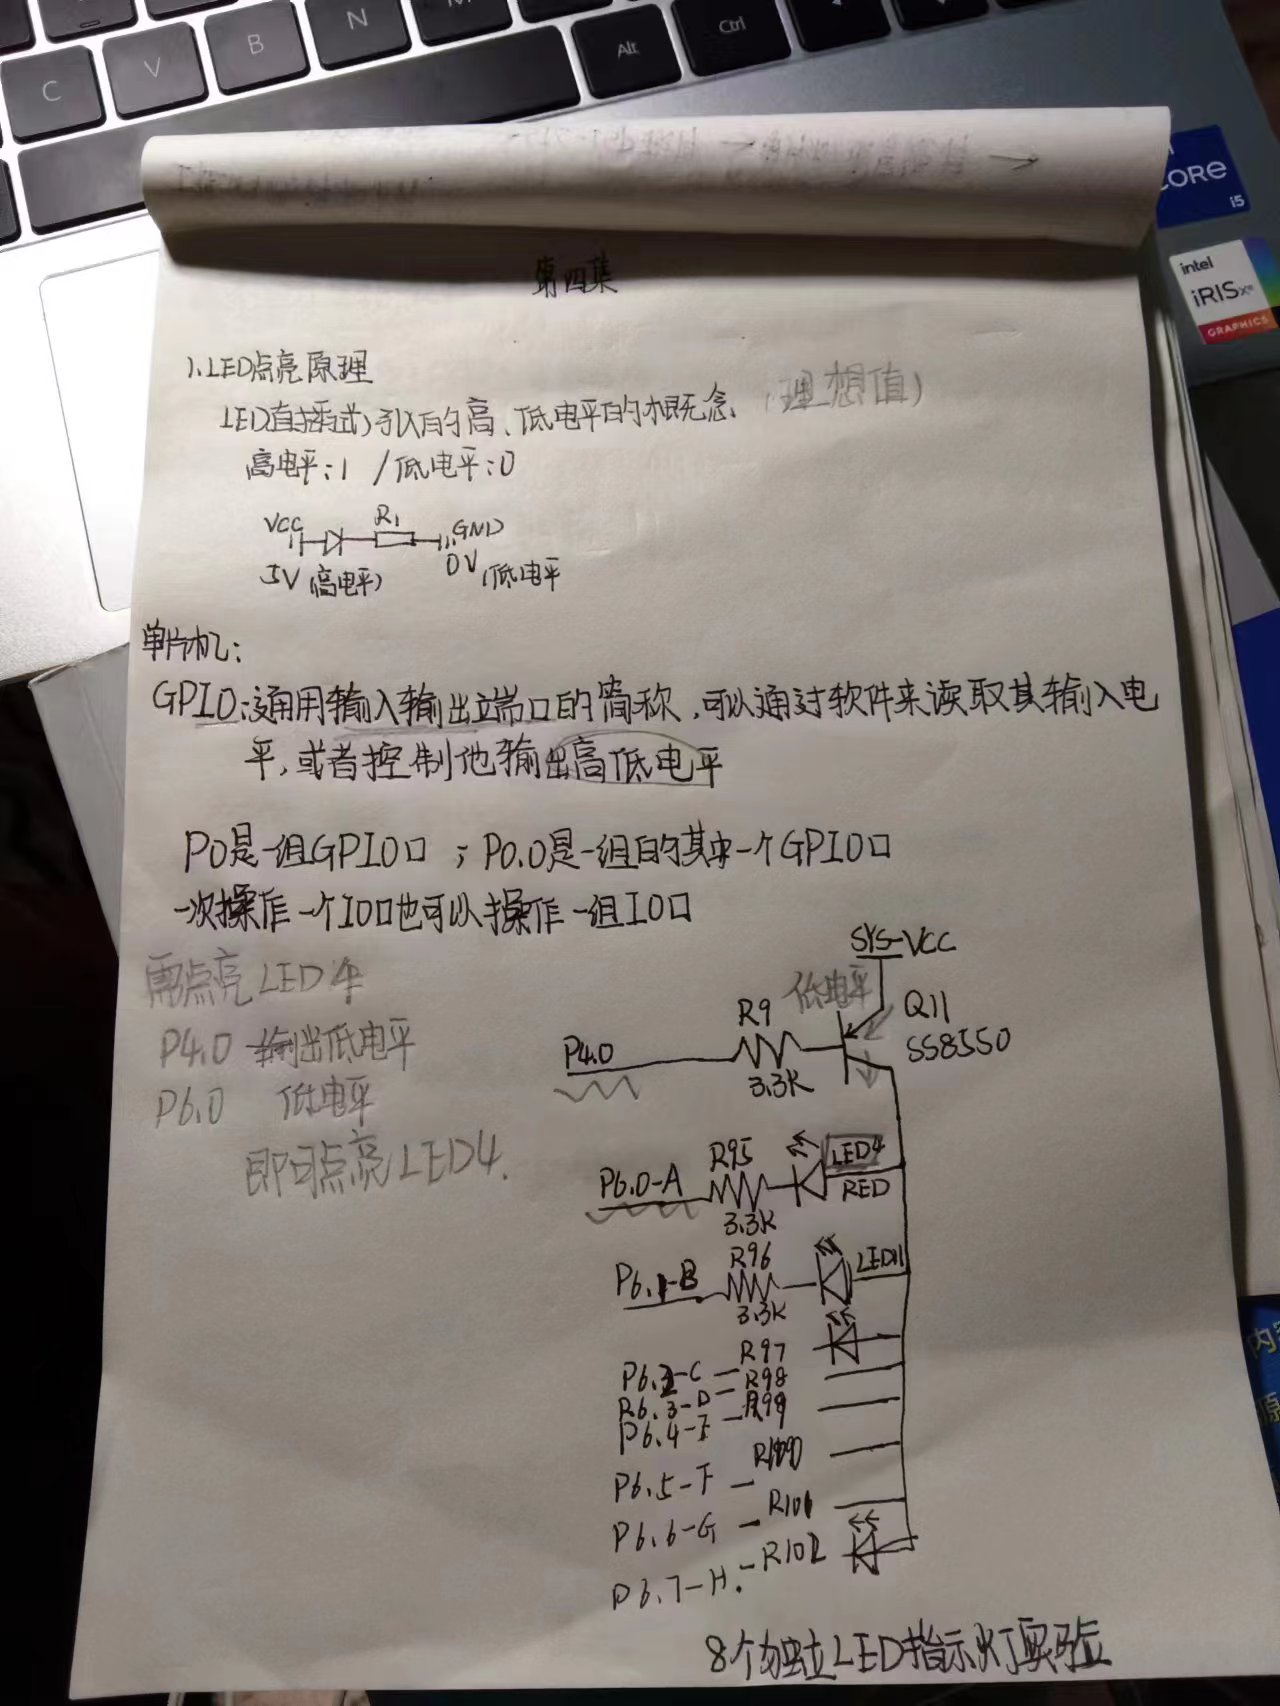 C
V
B
N
M
Alt
Ctrl
CORE
i5
intel
iRIS Xe
GRAPHICS
第四集
1.LED点亮原理
LED直接点引入的高、低电平的概念 (理想值)
高电平:1 /低电平:0
VCC R1 GND
5V (高电平) 0V (低电平
单片机:
GPIO:通用输入输出端口的简称,可以通过软件来读取其输入电
平,或者控制他输出高低电平
P0是一组GPIO口 ;P0.0是一组的其中一个GPIO口
一次操作一个IO口也可以操作一组IO口
需点亮LED4
P4.0 输出低电平
P6.0 低电平
即可点亮LED4.
SYS-VCC
低电平
R9 Q11
P4.0 SS8550
3.3K
R95 LED4
P6.0-A RED
3.3K
R96 LED11
P6.1-B
3.3K
P6.2-C - R97
R6.3-D - R98
P6.4-E - R99
P6.5-F - R100
P6.6-G - R101
P6.7-H. - R102
8个独立LED指示灯实验